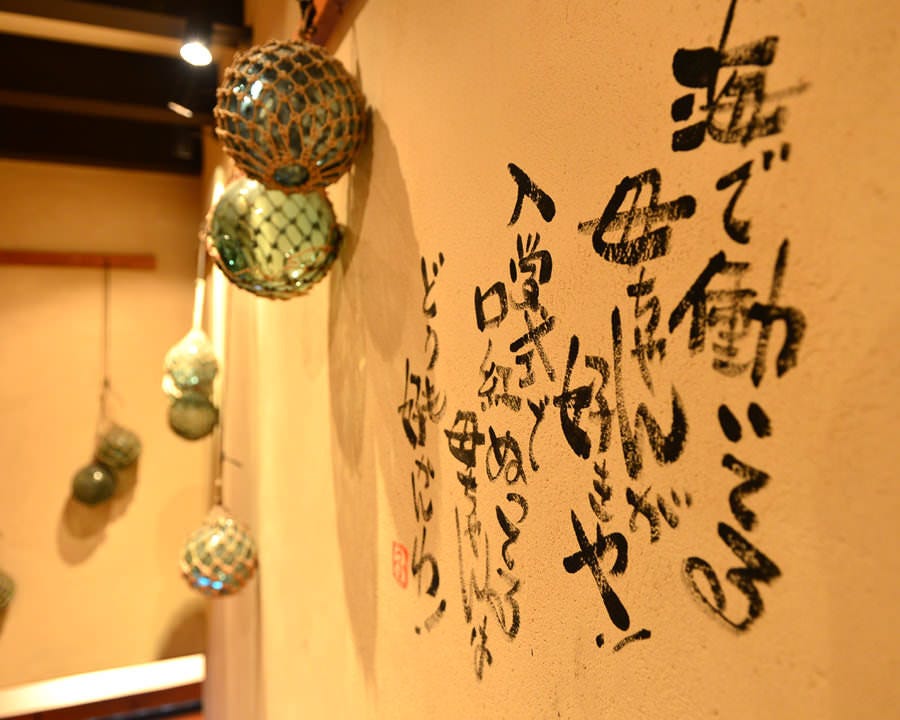 海で働いとる
母ちゃんが
好きや!
入学式で
口紅ぬっとる
母ちゃんは
どうも
好かんわ!